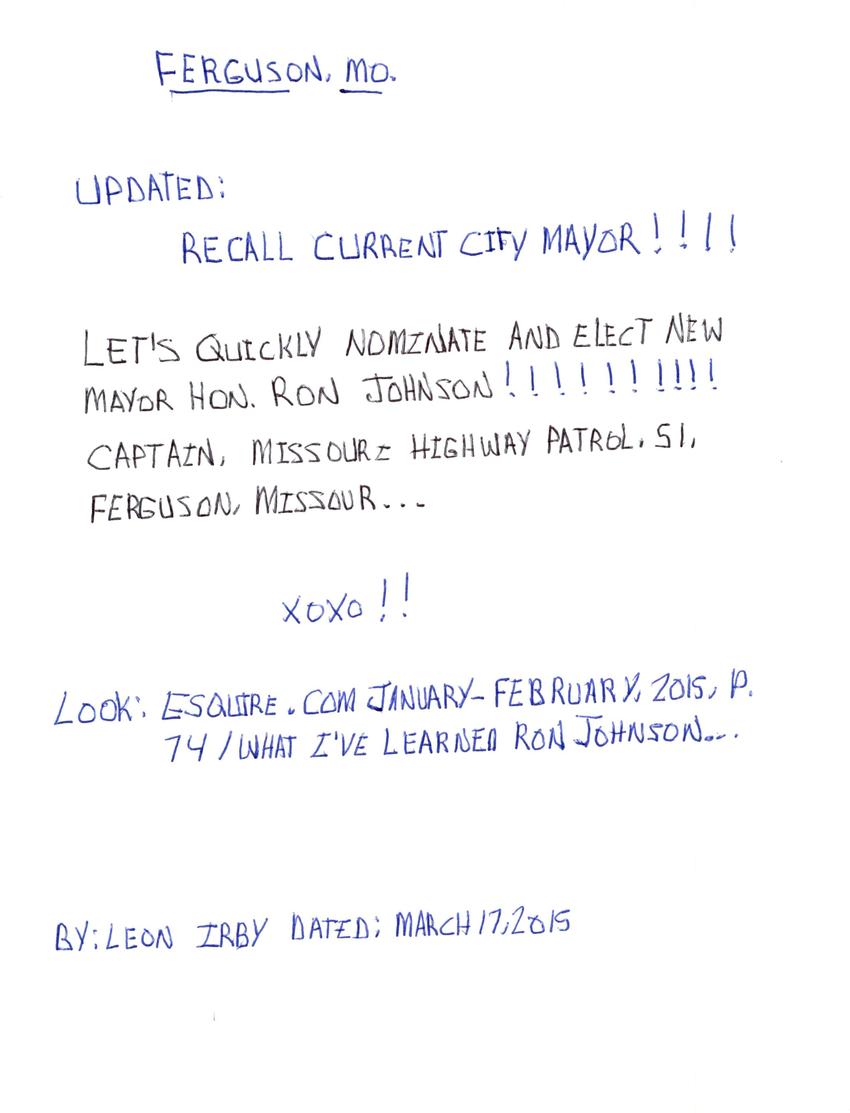 FERGUSON, MO.
UPDATED:
RECALL CURRENT CITY MAYOR!!!!
LET'S QUICKLY NOMINATE AND ELECT NEW
MAYOR HON. RON JOHNSON!!!!!!!!!!
CAPTAIN, MISSOURI HIGHWAY PATROL, 51,
FERGUSON, MISSOUR...
XOXO!!
LOOK: ESQUIRE.COM JANUARY-FEBRUARY, 2015, P.
74/WHAT I'VE LEARNED RON JOHNSON....
BY: LEON IRBY DATED; MARCH 17, 2015